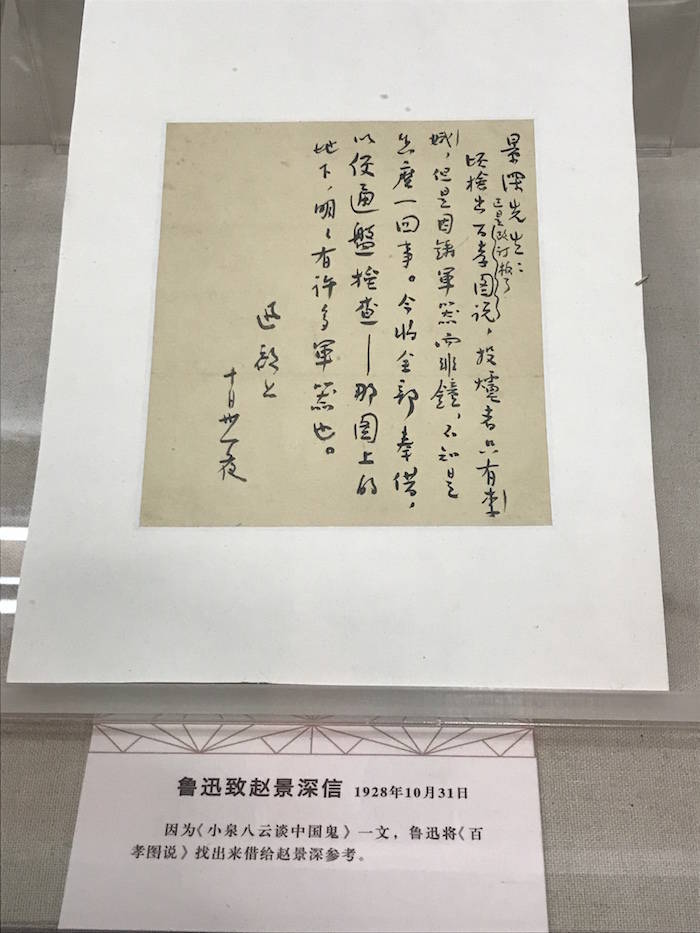 景深先生：
顷捡出百孝图说，投爐者只有李
已是改订板了
娥，但是因鑄軍器而非鐘，不知是
怎麼一回事。今将全部奉借，
以便通盤捡查—那图上的
地下，明〻有许多軍器也。
迅启上
十月卅一夜
鲁迅致赵景深信 1928年10月31日
因为《小泉八云谈中国鬼》一文，鲁迅将《百
孝图说》找出来借给赵景深参考。